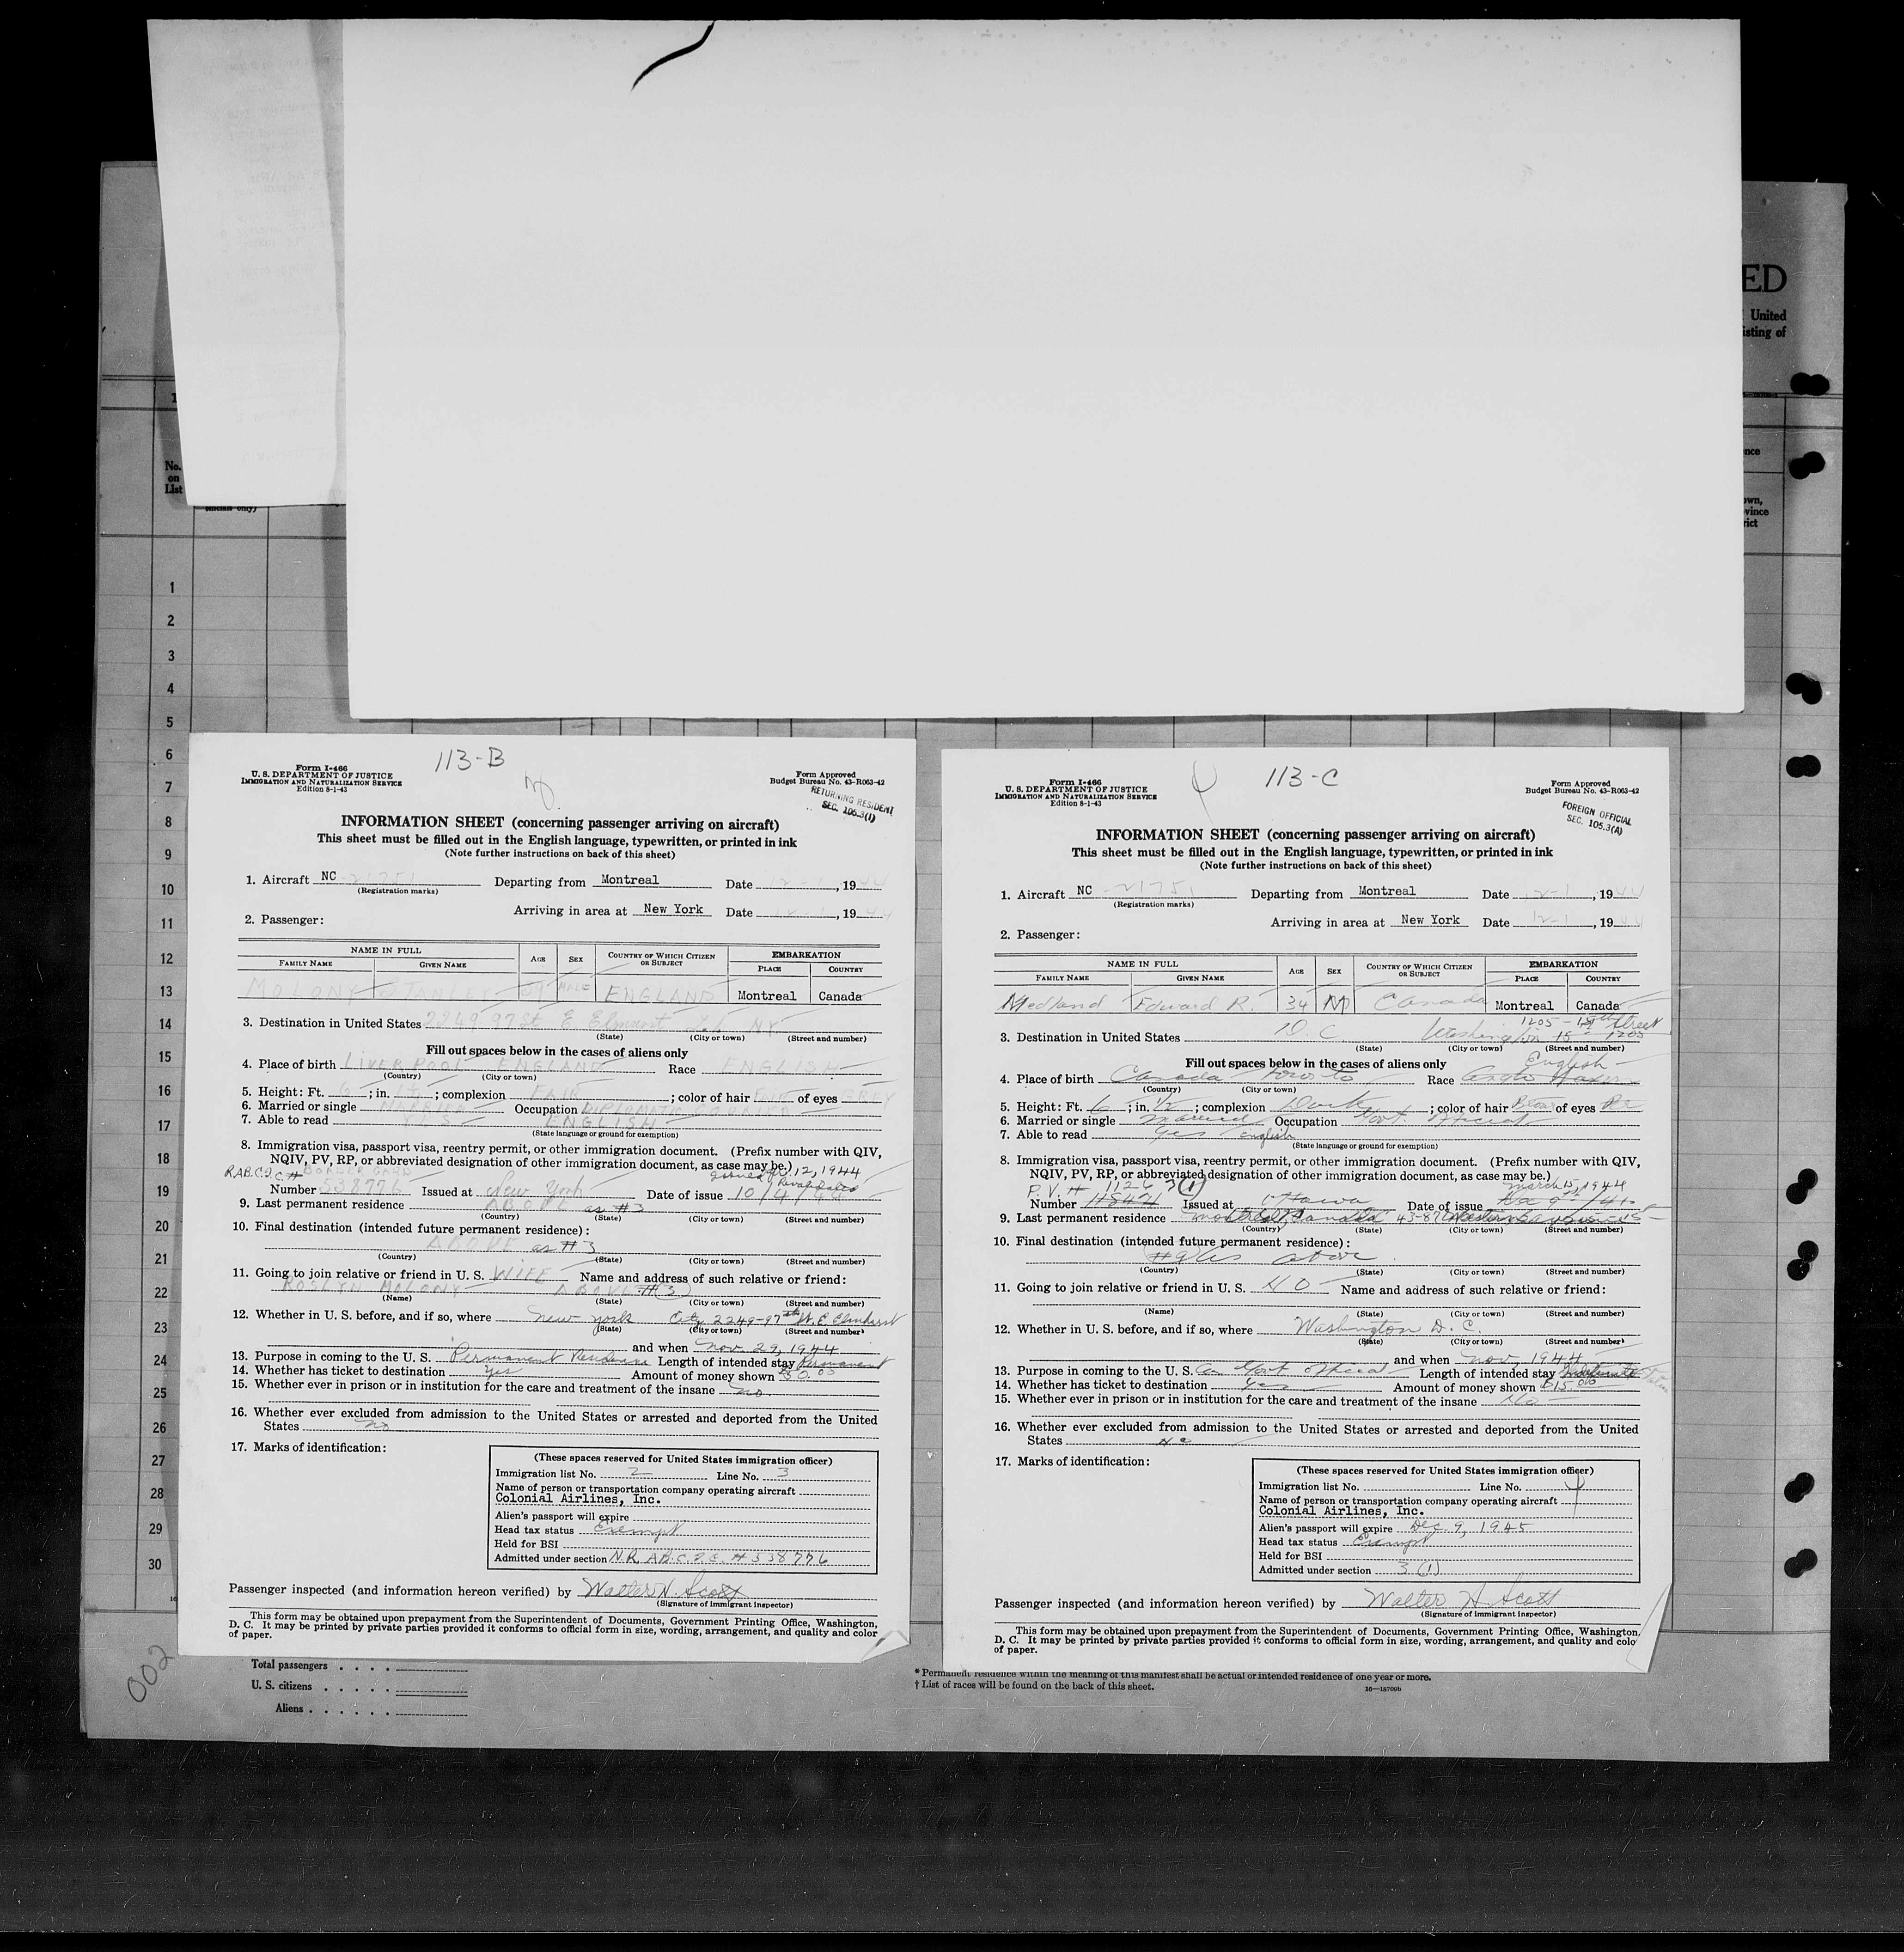 ED
United
isting of
No.
on
List
nce
own,
vince
rict
1
2
3
4
5
6
7
8
9
10
11
12
13
14
15
16
17
18
19
20
21
22
23
24
25
26
27
28
29
30
113-B
Form I-466
U. S. DEPARTMENT OF JUSTICE
IMMIGRATION AND NATURALIZATION SERVICE
Edition 8-1-43
Form Approved
Budget Bureau No. 43-R063-42
RETURNING RESIDENT
SEC. 105.3(I)
INFORMATION SHEET (concerning passenger arriving on aircraft)
This sheet must be filled out in the English language, typewritten, or printed in ink
(Note further instructions on back of this sheet)
1. Aircraft NC -21751 Departing from Montreal Date 12-1, 1944
(Registration marks)
Arriving in area at New York Date 12-1, 1944
2. Passenger:
NAME IN FULL AGE SEX COUNTRY OF WHICH CITIZEN OR SUBJECT EMBARKATION
FAMILY NAME GIVEN NAME PLACE COUNTRY
MOLONY STANLEY MALE ENGLAND Montreal Canada
3. Destination in United States 2249 97 St E Elmhurst NY
(State) (City or town) (Street and number)
Fill out spaces below in the cases of aliens only
4. Place of birth LIVERPOOL ENGLAND Race ENGLISH
(Country) (City or town)
5. Height: Ft. 6; in.; complexion FAIR; color of hair of eyes GREY
6. Married or single MARRIED Occupation DIPLOMATIC COURIER
7. Able to read YES ENGLISH
(State language or ground for exemption)
8. Immigration visa, passport visa, reentry permit, or other immigration document. (Prefix number with QIV,
NQIV, PV, RP, or abbreviated designation of other immigration document, as case may be.)
R.A.B.C.I.C.# BORDER CARD issued 12, 1944 Revalidated
Number 538776 Issued at New York Date of issue 10/4/44
9. Last permanent residence ABOVE as #3
(Country) (State) (City or town) (Street and number)
10. Final destination (intended future permanent residence):
ABOVE as #3
(Country) (State) (City or town) (Street and number)
11. Going to join relative or friend in U. S. WIFE Name and address of such relative or friend:
ROSLYN MOLONY ABOVE #(3)
(Name) (State) (City or town) (Street and number)
12. Whether in U. S. before, and if so, where New York City 2249-97th St. E. Elmhurst
(State) (City or town) (Street and number)
and when Nov. 29, 1944
13. Purpose in coming to the U. S. Permanent Residence Length of intended stay Permanent
14. Whether has ticket to destination Yes Amount of money shown 50.00
15. Whether ever in prison or in institution for the care and treatment of the insane no
16. Whether ever excluded from admission to the United States or arrested and deported from the United
States no
17. Marks of identification:
(These spaces reserved for United States immigration officer)
Immigration list No. 2 Line No. 3
Name of person or transportation company operating aircraft
Colonial Airlines, Inc.
Alien's passport will expire
Head tax status Exempt
Held for BSI
Admitted under section N.R. A.B.C.I.C. #538776
Passenger inspected (and information hereon verified) by Walter H. Scott
(Signature of immigrant inspector)
This form may be obtained upon prepayment from the Superintendent of Documents, Government Printing Office, Washington,
D. C. It may be printed by private parties provided it conforms to official form in size, wording, arrangement, and quality and color
of paper.
113-C
Form I-466
U. S. DEPARTMENT OF JUSTICE
IMMIGRATION AND NATURALIZATION SERVICE
Edition 8-1-43
Form Approved
Budget Bureau No. 43-R063-42
FOREIGN OFFICIAL
SEC. 105.3(A)
INFORMATION SHEET (concerning passenger arriving on aircraft)
This sheet must be filled out in the English language, typewritten, or printed in ink
(Note further instructions on back of this sheet)
1. Aircraft NC -21751 Departing from Montreal Date 12-1, 1944
(Registration marks)
Arriving in area at New York Date 12-1, 1944
2. Passenger:
NAME IN FULL AGE SEX COUNTRY OF WHICH CITIZEN OR SUBJECT EMBARKATION
FAMILY NAME GIVEN NAME PLACE COUNTRY
Medland Edward R. 34 M Canada Montreal Canada
1205 - 15th Street
3. Destination in United States D.C. Washington 15 1205
(State) (City or town) (Street and number)
Fill out spaces below in the cases of aliens only
English
4. Place of birth Canada Toronto Race Anglo Saxon
(Country) (City or town)
5. Height: Ft. 6; in. 1/2; complexion Dark; color of hair Brown of eyes Br
6. Married or single Married Occupation Govt. Official
7. Able to read Yes English
(State language or ground for exemption)
8. Immigration visa, passport visa, reentry permit, or other immigration document. (Prefix number with QIV,
NQIV, PV, RP, or abbreviated designation of other immigration document, as case may be.)
P.V. # 1126 3(1) March 15, 1944
Number Issued at Ottawa Date of issue
9. Last permanent residence Montreal, Canada
(Country) (State) (City or town) (Street and number)
10. Final destination (intended future permanent residence):
#9 As above
(Country) (State) (City or town) (Street and number)
11. Going to join relative or friend in U. S. NO Name and address of such relative or friend:
(Name) (State) (City or town) (Street and number)
12. Whether in U. S. before, and if so, where Washington D.C.
(State) (City or town) (Street and number)
and when Nov, 1944
13. Purpose in coming to the U. S. Can Govt official Length of intended stay Indefinite
14. Whether has ticket to destination Yes Amount of money shown $15.00
15. Whether ever in prison or in institution for the care and treatment of the insane No
16. Whether ever excluded from admission to the United States or arrested and deported from the United
States No
17. Marks of identification:
(These spaces reserved for United States immigration officer)
Immigration list No. Line No. 4
Name of person or transportation company operating aircraft
Colonial Airlines, Inc.
Alien's passport will expire Dec. 9, 1945
Head tax status Exempt
Held for BSI
Admitted under section 3 (1)
Passenger inspected (and information hereon verified) by Walter H Scott
(Signature of immigrant inspector)
This form may be obtained upon prepayment from the Superintendent of Documents, Government Printing Office, Washington,
D. C. It may be printed by private parties provided it conforms to official form in size, wording, arrangement, and quality and colo
of paper.
002
Total passengers
U. S. citizens
Aliens
* Permanent residence within the meaning of this manifest shall be actual or intended residence of one year or more.
† List of races will be found on the back of this sheet.
16—18709b